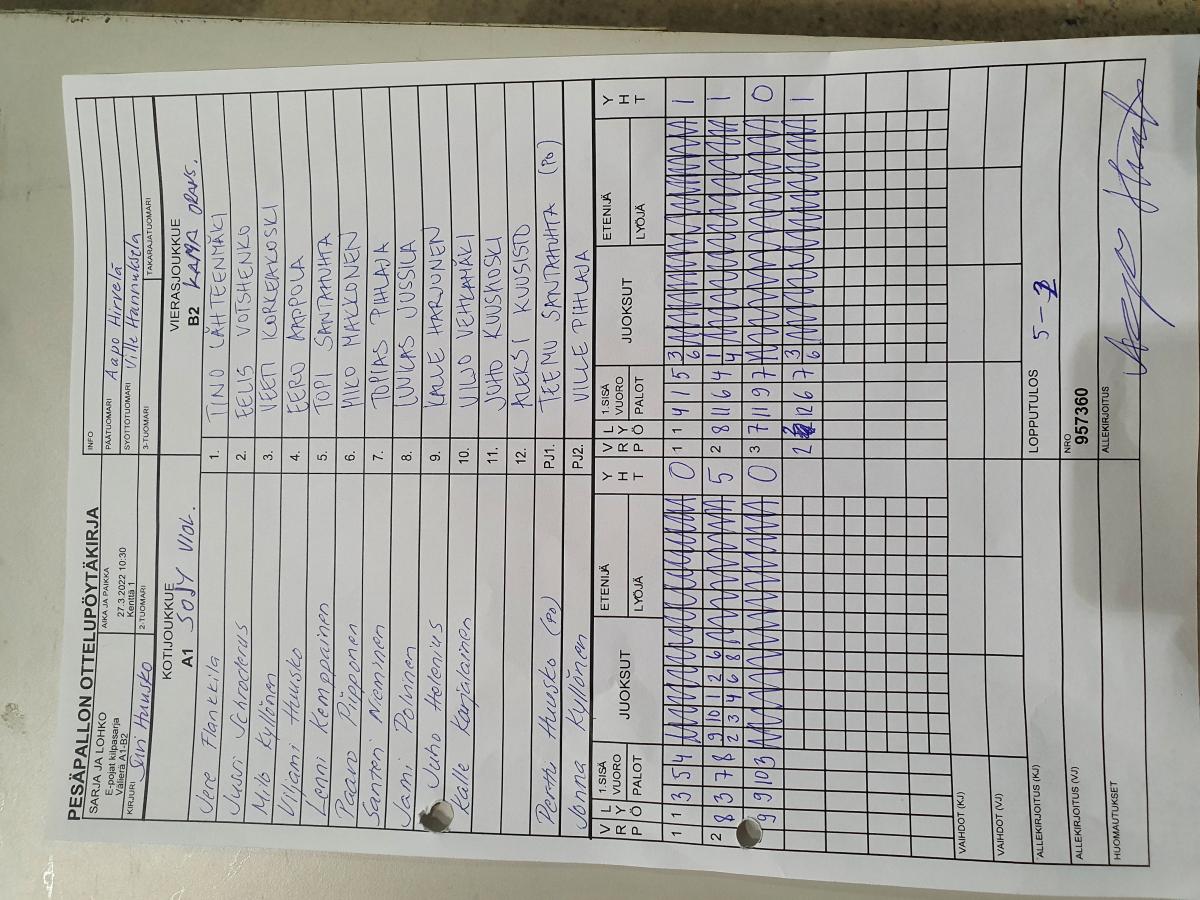 PESÄPALLON OTTELUPÖYTÄKIRJA
SARJA JA LOHKO
E-pojat kilpasarja
Välierä A1-B2
AIKA JA PAIKKA
27.3.2022 10:30
Kenttä 1
INFO
PÄÄTUOMARI Aapo Hirvelä
SYÖTTÖTUOMARI Ville Hannuksela
KIRJURI Suvi Huusko
2-TUOMARI
3-TUOMARI
TAKARAJATUOMARI
KOTIJOUKKUE
A1 SOJY VIOL.
VIERASJOUKKUE
B2 KAMA ORANS.
Vere Flankkila 1. TINO LÄHTEENMÄKI
Juuri Schroderus 2. EELIS VOTSHENKO
Milo Kyllönen 3. VEETI KORKEAKOSKI
Viljami Huusko 4. EERO AAPPOLA
Lenni Kemppainen 5. TOPI SANTAHUHTA
Paavo Piipponen 6. MIKO MAKKONEN
Santeri Nieminen 7. TOPIAS PIHLAJA
Jami Polvinen 8. LUUKAS JUSSILA
Juho Helenius 9. KALLE HARJUNEN
Kalle Karjalainen 10. VILJO VEHKAMÄKI
11. JUHO KUUSKOSKI
12. ALEKSI KUUSISTO
Perttu Huusko (PO) PJ1. TEEMU SANTAHUHTA (PO)
Jonna Kyllönen PJ2. VILLE PIHLAJA
V R L Y P Ö 1.SISÄ VUORO PALOT JUOKSUT ETENIJÄ LYÖJÄ Y H T
V R L Y P Ö 1.SISÄ VUORO PALOT JUOKSUT ETENIJÄ LYÖJÄ Y H T
1 1 3 5 4 0
1 1 4 1 5 3 6 1
2 8 3 7 8 9 10 1 2 6
2 3 4 6 8 5
2 8 11 6 4 1 4 1
9 9 10 3 0
3 7 11 9 7 0
2 12 6 7 3 6 1
VAIHDOT (KJ)
VAIHDOT (VJ)
ALLEKIRJOITUS (KJ)
LOPPUTULOS 5-
ALLEKIRJOITUS (VJ)
NRO
957360
HUOMAUTUKSET
ALLEKIRJOITUS